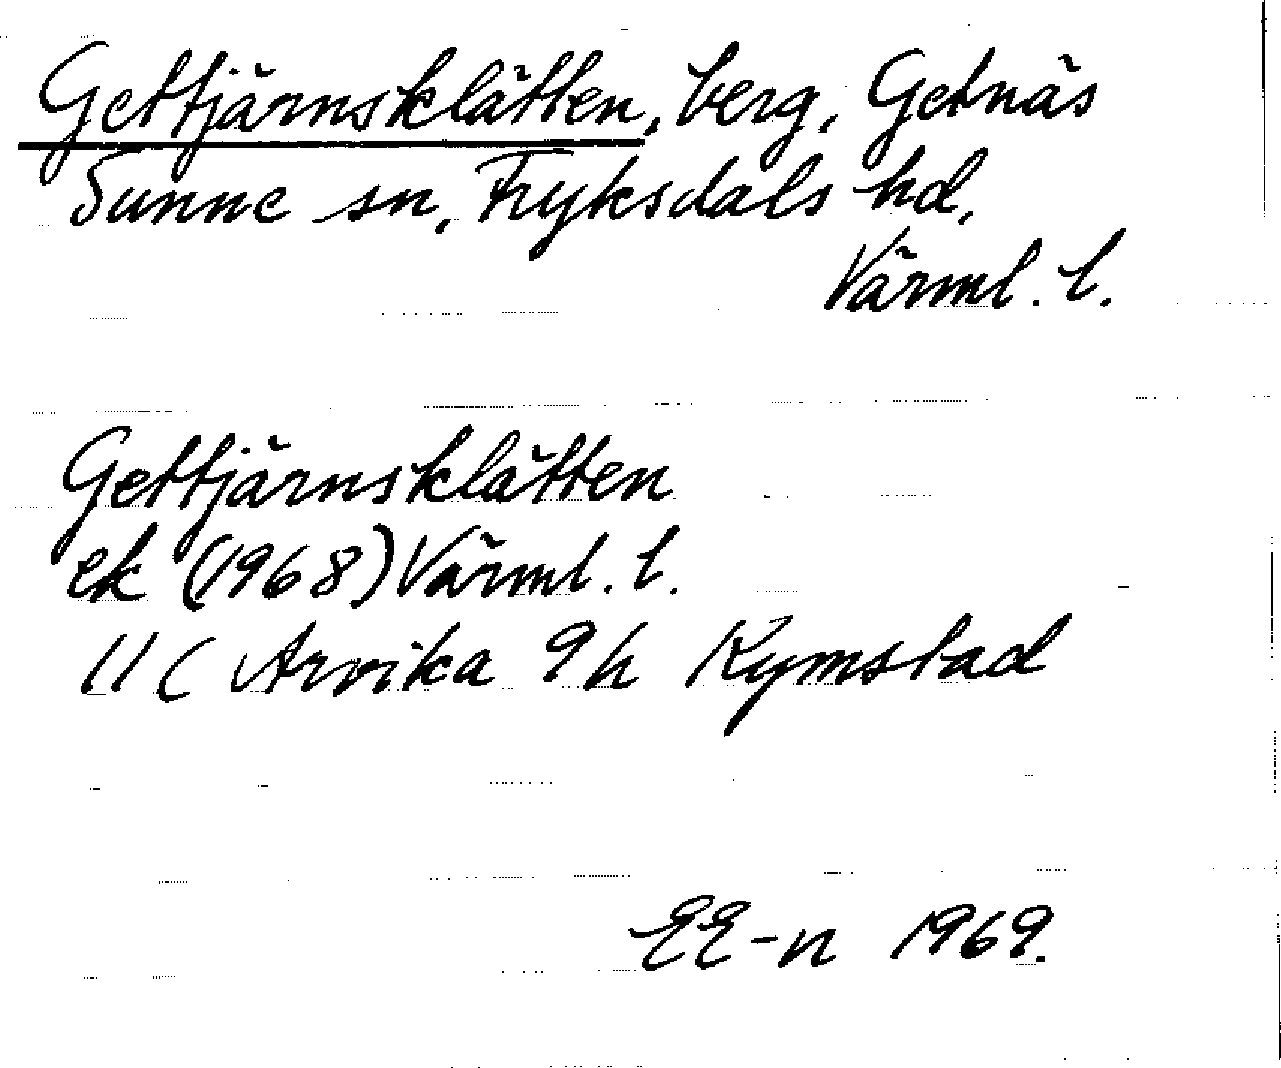 Gettjärnsklätten, berg, Getnäs
Sunne sn, Fryksdals hd,
Värml. l.
Gettjärnsklätten
ek (1968) Värml. l.
11 C Arvika 9h Rymstad
EE-n 1969.